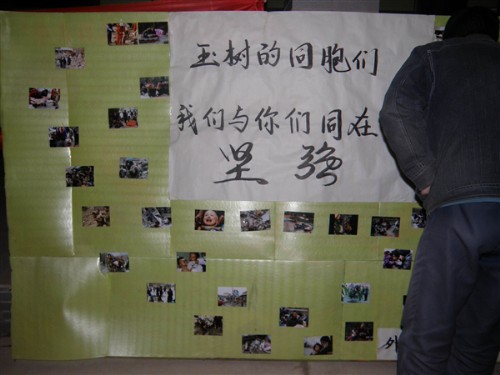 玉树的同胞们
我们与你们同在
坚强
外